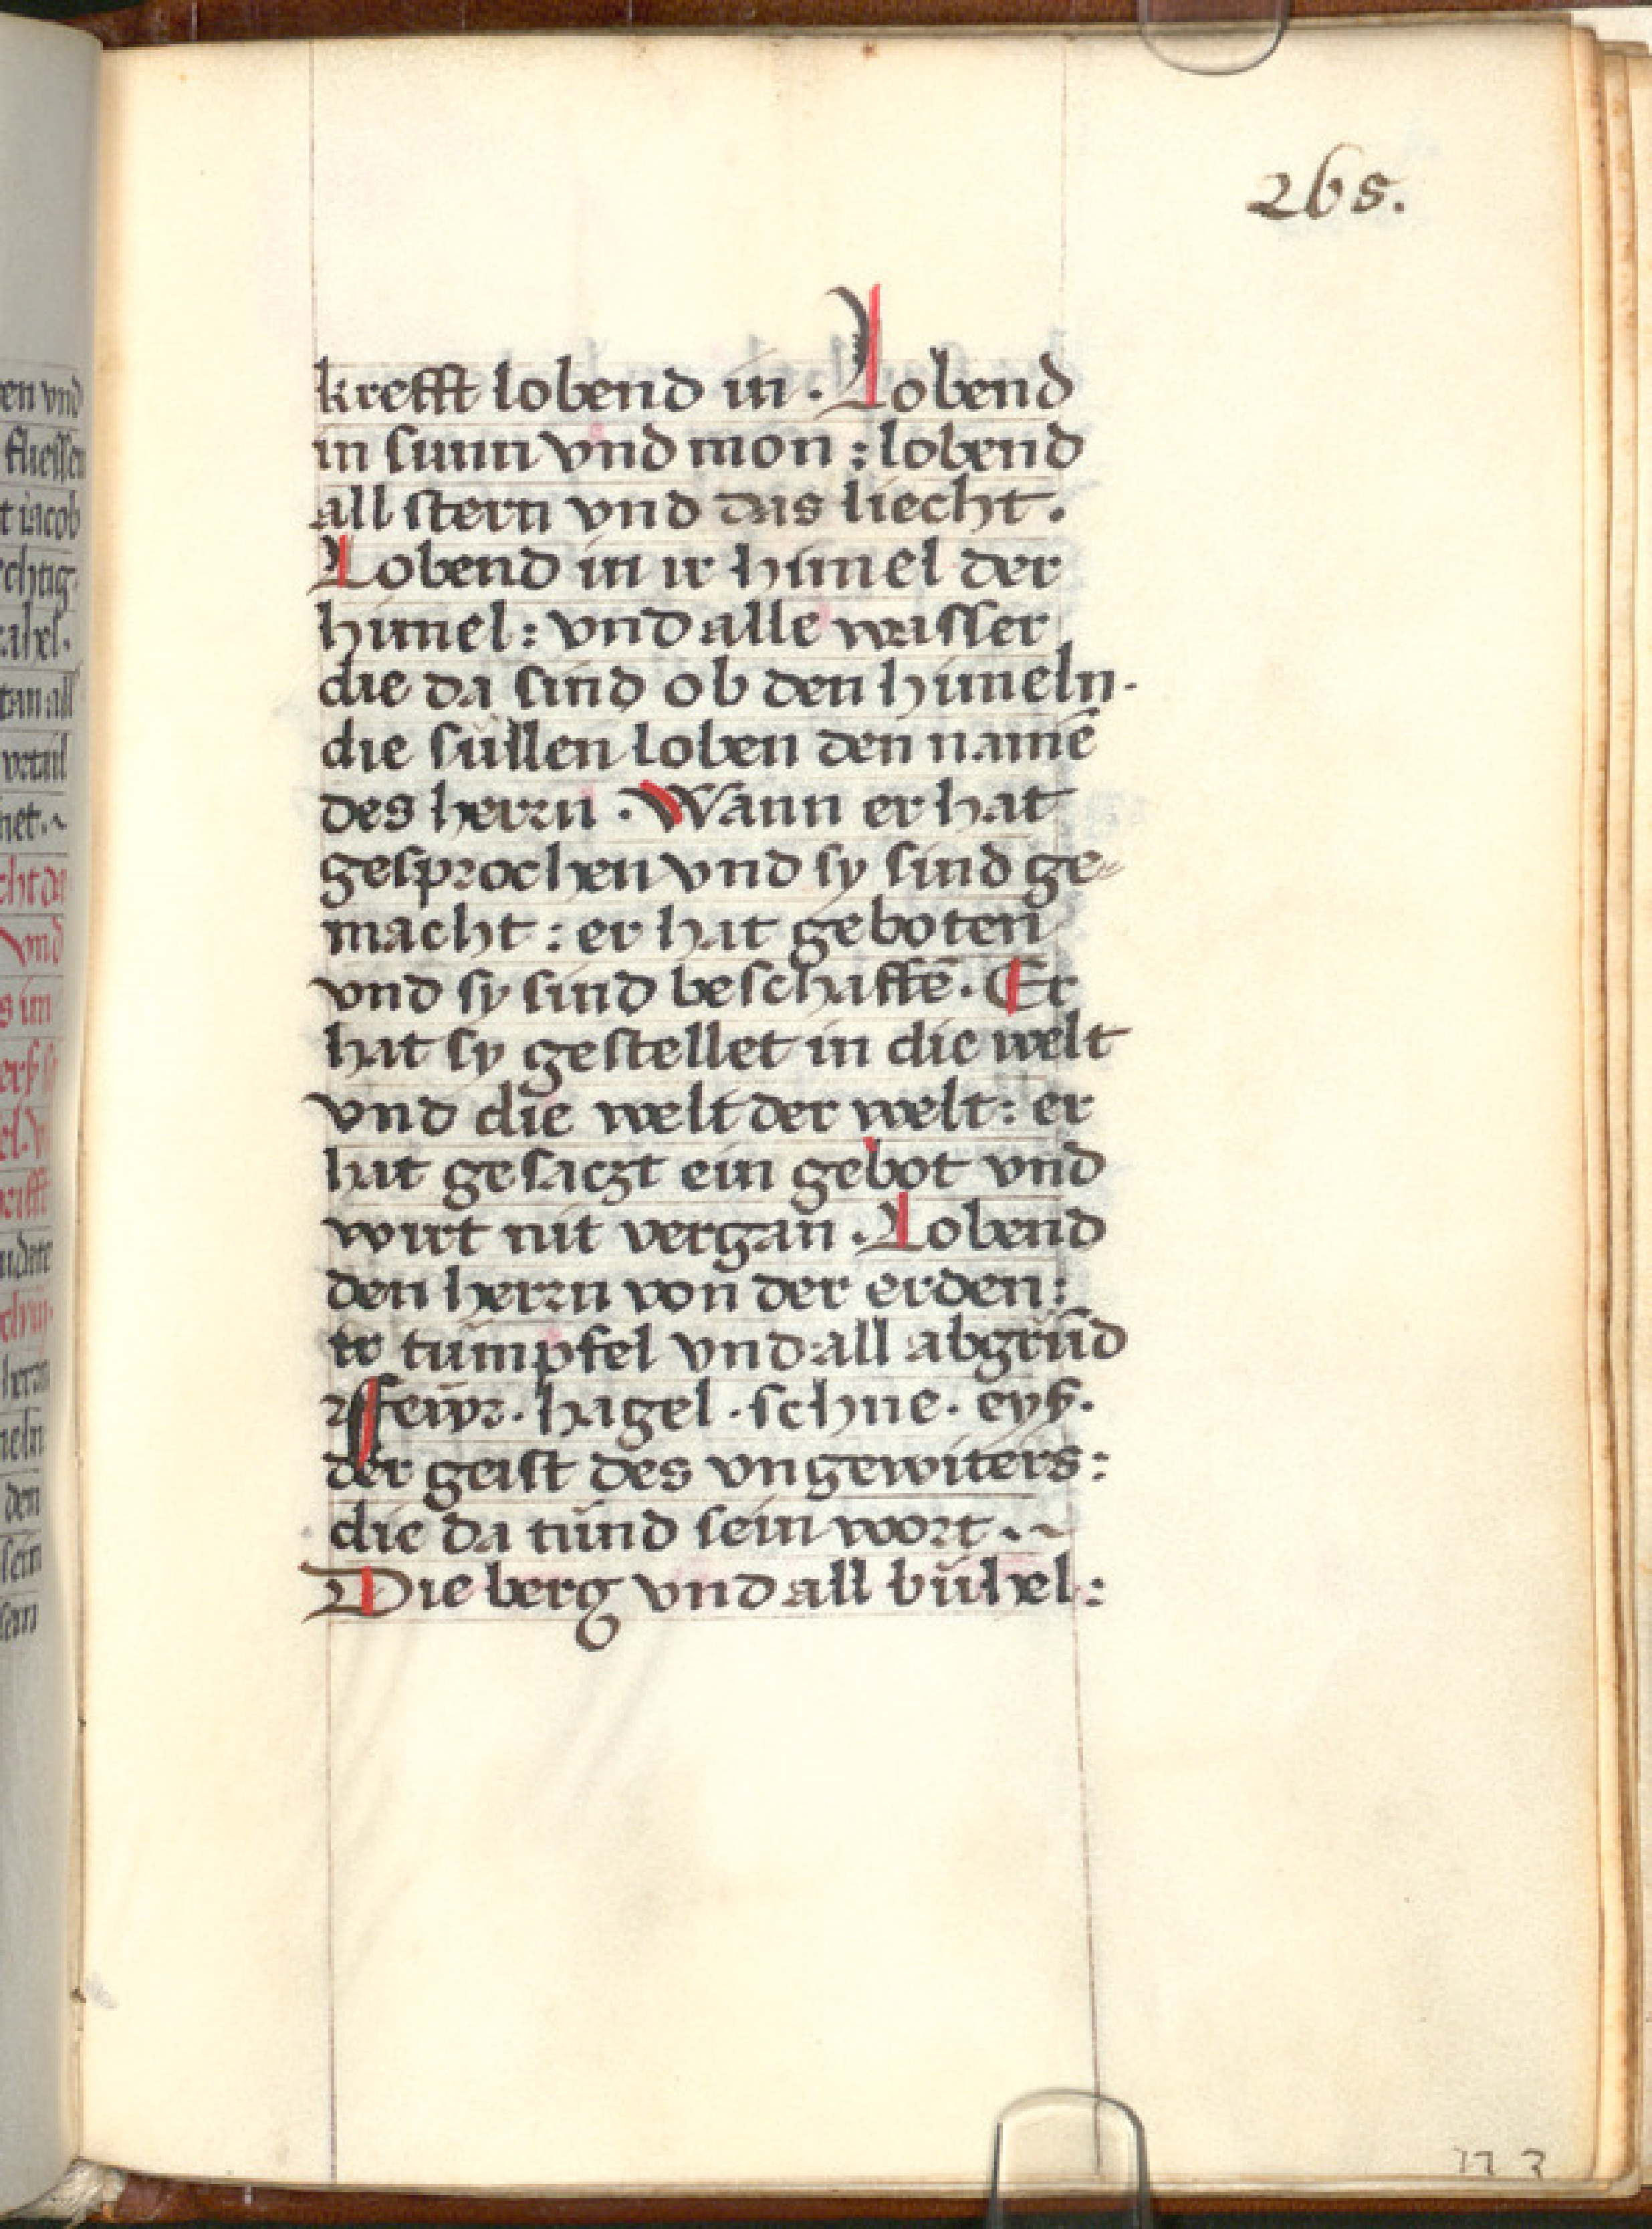 265.
krefft lobend in. Lobend
in sunn vnd mon: lobend
all stern vnd das liecht.
Lobend in ir himel der
himel: vnd alle wasser
die da sind ob den himeln.
die süllen loben den namē
des herrn. Wann er hat
gesprochen vnd sy sind ge-
macht: er hat geboten
vnd sy sind beschaffē. Er
hat sy gestellet in die welt
vnd die welt der welt: er
hat gesaczt ein gebot vnd
wirt nit vergan. Lobend
den herrn von der erden:
tümpfel vnd all abgrūd
ffewr. hagel. schne. eyß.
der geist des vngewiters:
die da tůnd sein wort.
Die berg vnd all bühel:
en vnd
fliessen
t iacob
echtig
rahel.
tan all
vrtail
net.
cht da
vnd
s im
rifft
udate
herrn
meln
den
sein
sein